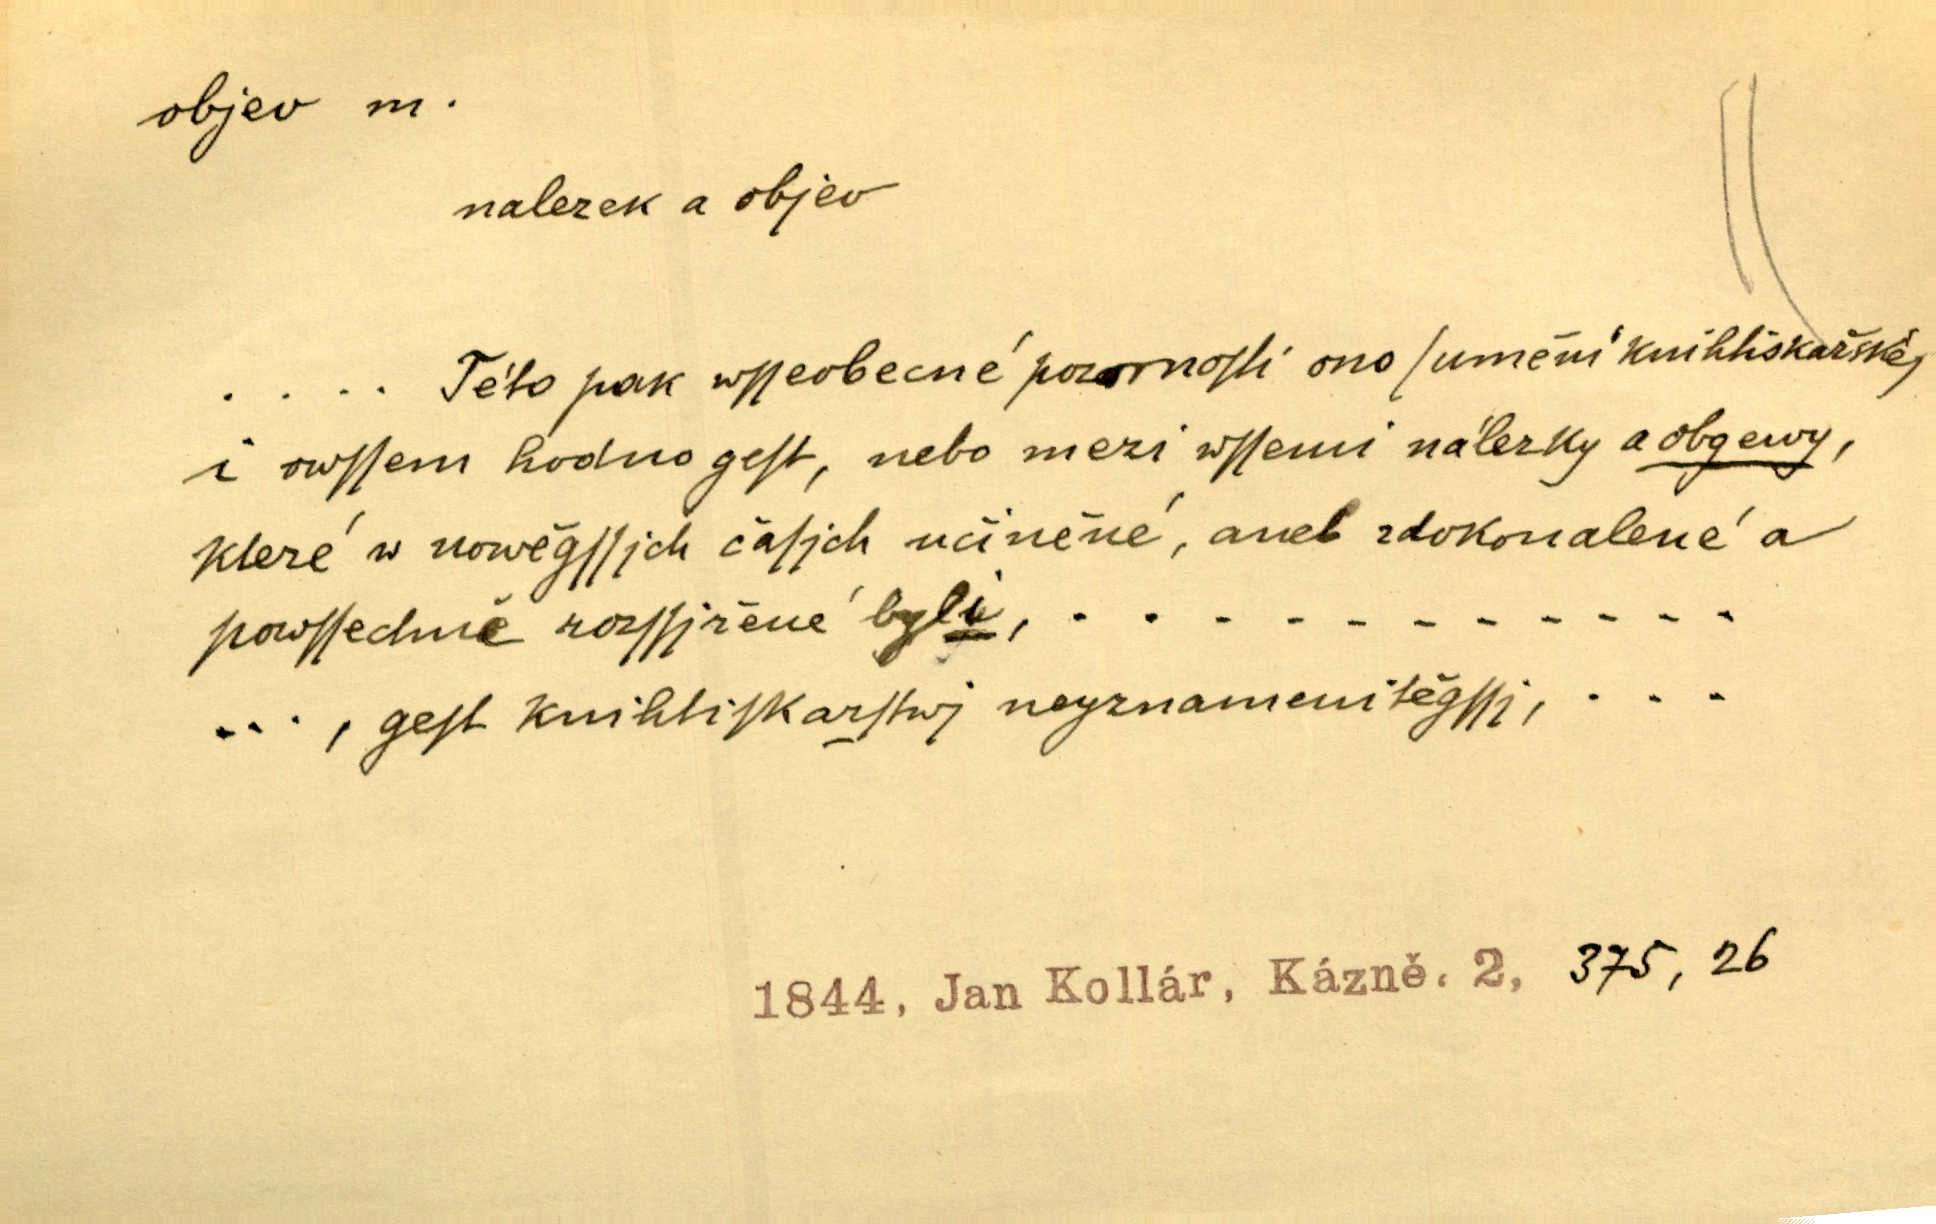 objev m.
nalezek a objev
. . . . Této pak wſſeobecné pozornoſti ono /umění knihtiskařské/
i owſſem hodno geſt, nebo mezi wſſemi nálezky a obgewy,
které w nowěgſſjch čaſjch učiněné, aneb zdokonalené a
powſſedmě rozſſjřené byli, . . - - - - - - - - - -
. . . , geſt knihtiſkarſtwj neyznamenitěgſſj, . - -
1844, Jan Kollár, Kázně. 2, 375, 26